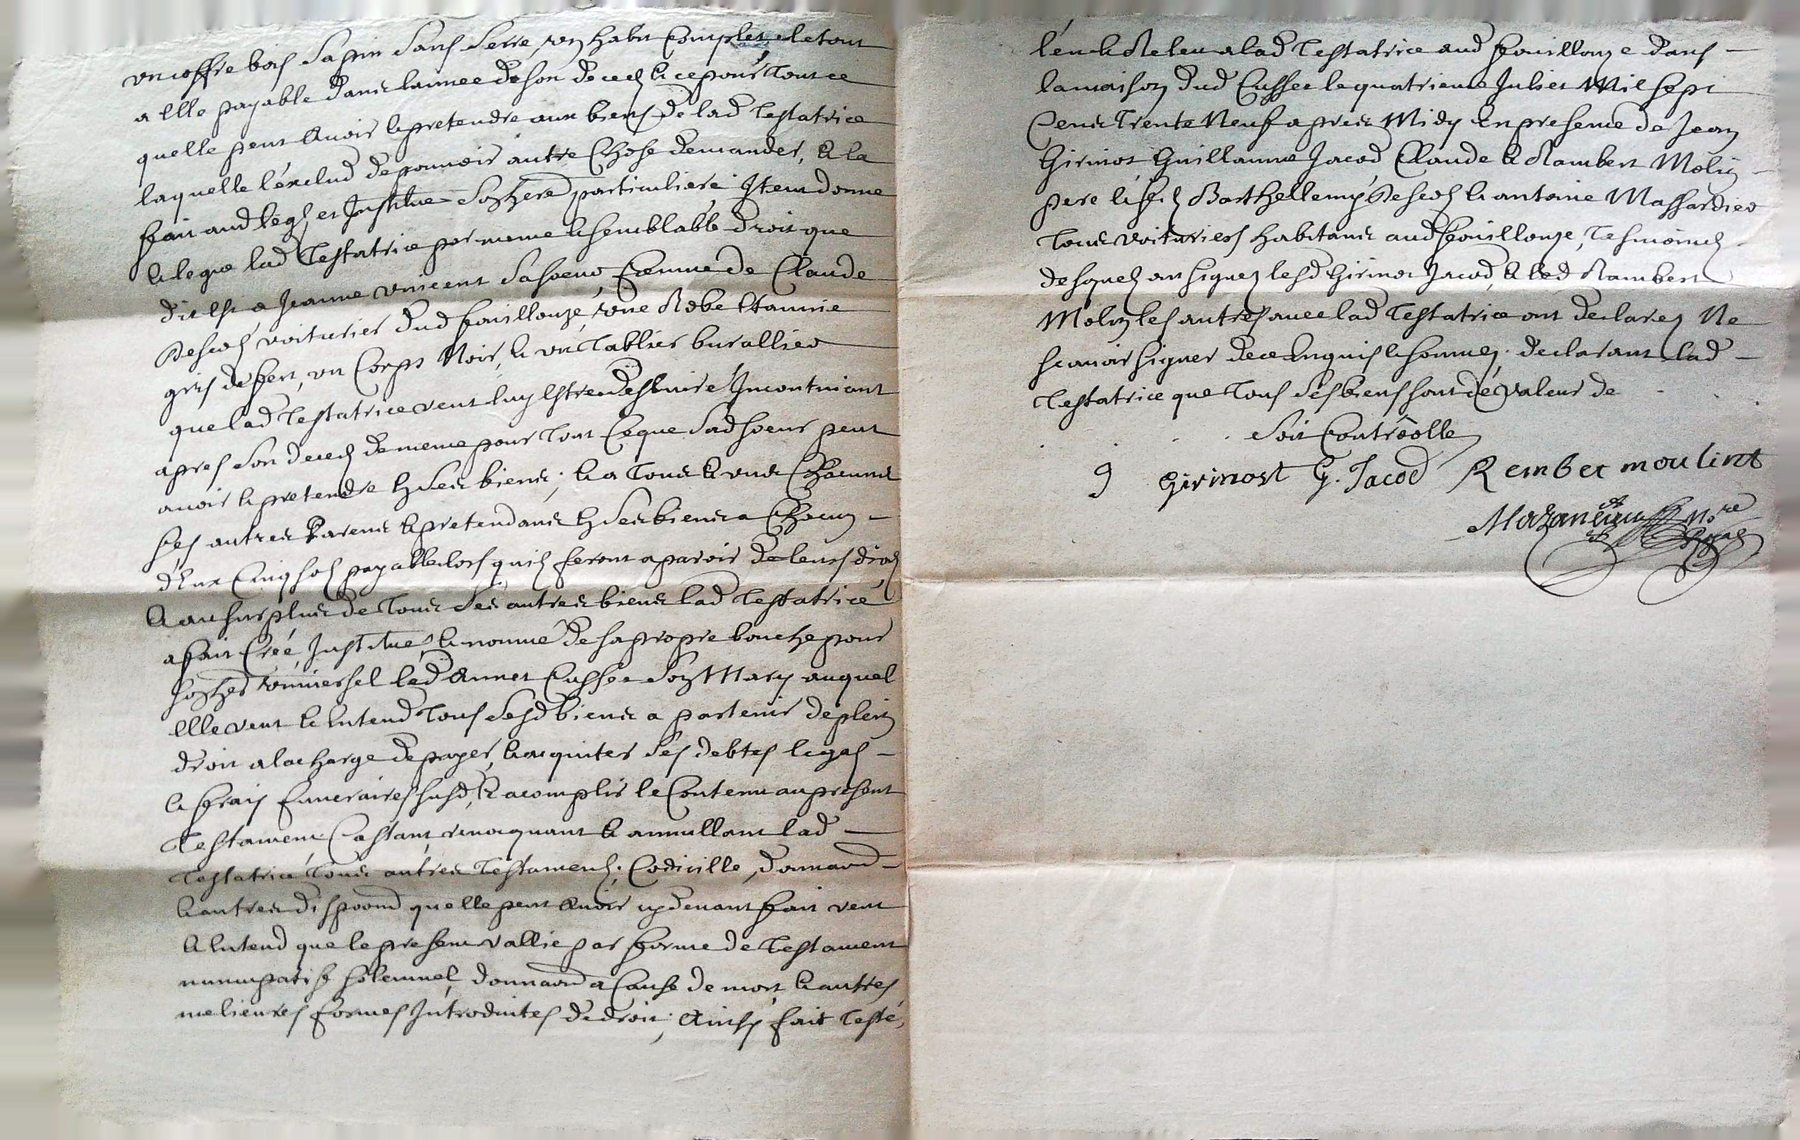 un coffre bois sapin sans serre son habit complet le tout
a elle payable dans lannee de son deced & ce pour tout ce
quelle peut avoir & pretendre aux biens de lad testatrice
laquelle l'exclud de pouvoir autre chose demander, & la
fait aud legs et Institue son here particuliere Item donne
& legue lad testatrice par meme & semblable droit que
dit est a Jeanne vincent sa soeur femme de Claude
voiturier dud fouillouze, une Robe
gris de fert, un Corps Noir, & un tablier
que lad testatrice veut luy estre Incontinant
apres son deced de meme pour tout ce que sad soeur peut
avoir & pretendre en ses biens; & a tous & uns chacuns
ses autres Parens & pretendans en ses biens a chacun
d'Eux Cinq sols payable lors quils feront aparoir de leurs droits
& au surplus de tous ses autres biens lad testatrice
a fait Créé, Institue, & nommé de sa propre bouche pour
son her universel led Annet Cusset son Mary auquel
elle veut & entend tous sesd biens a partenir de plein
droit a la charge de payer, & acquiter ses debtes legas
& frais funeraires susd, & acomplir le Contenu au present
testament Cassant revocquant & annullant lad
testatrice tous autres testamens, Codicille, donnaon
& autres dispoons quelle peut avoir cydevant fait veut
& entend que le present vallie par forme de testament
nuncupatif solemnel, donnaon a cause de mort & autres
melieures formes Introduites de droit; Ainsy fait testé,
leu & Releu a lad testatrice aud fouillouze dans
la maison dud Cusset le quatrieme Julliet Mil sept
Cens trente Neuf apres Midy En presence de Jean
Girinot Guillaume Jacod Claude & Rambert Molin
pere & fils Barthellemy & antoine Massardier
tous voituriers habitans aud fouillouze, tesmoins
desquels on signez lesd Girinot Jacod, & led Rambert
Molin les autres avec lad testatrice ont declarez Ne
scavoir signer de ce Enquis & sommez declarant lad
testatrice que tous ses biens sont de valeur de
soit Controolle
9 Girinost G. Jacod Rembet moulint
Nre
Royal